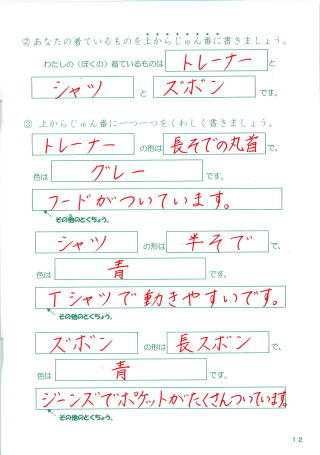 ②あなたの着ているものを上からじゅん番に書きましょう。
わたしの（ぼくの）着ているものは トレーナー と
シャツ と ズボン です。
③ 上からじゅん番に一つ一つをくわしく書きましょう。
トレーナー の形は 長そでの丸首 で、
色は グレー です。
フードがついています。
その他のとくちょう。
シャツ の形は 半そで で、
色は 青 です。
Tシャツで動きやすいです。
その他のとくちょう。
ズボン の形は 長スボン で、
色は 青 です。
ジーンズでポケットがたくさんついています。
その他のとくちょう。
12